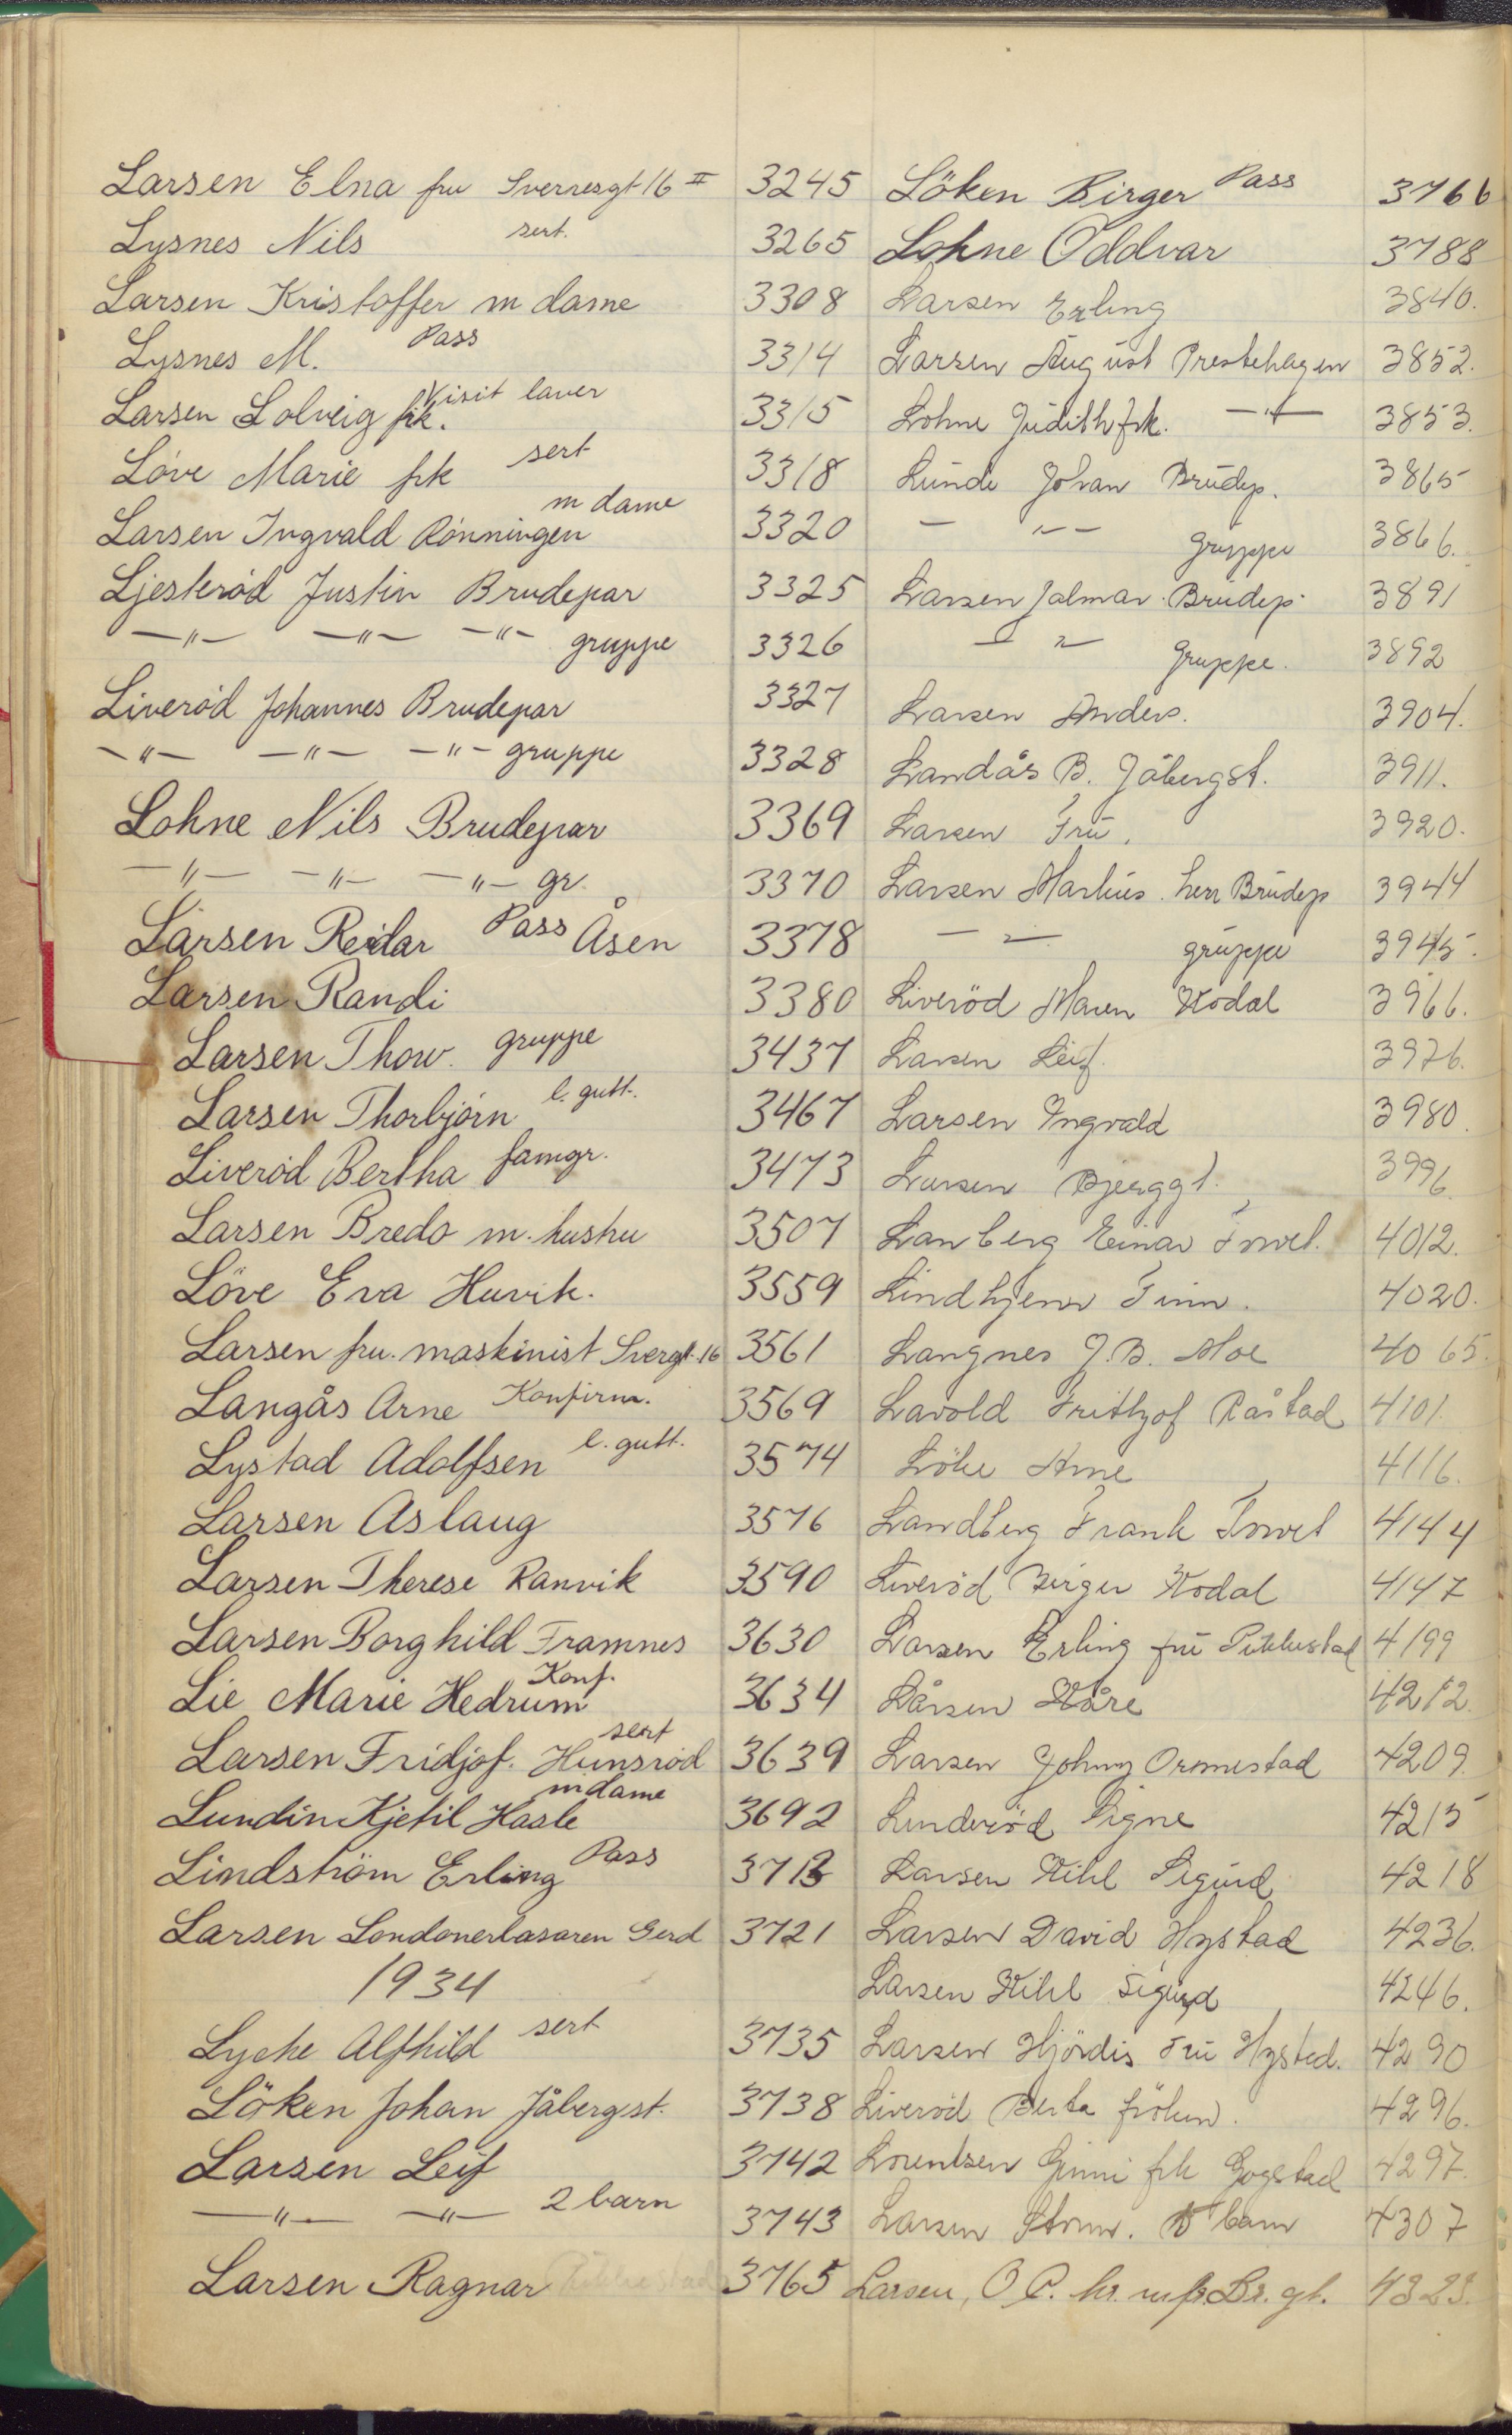 Larsen Elna fru Sverresgt 16 II 3245
Lysnes Nils sert. 3265
Larsen Kristoffer m dame 3308
Lysnes M. Pass 3314
Larsen Solveig frk. Visit laver 3315
Løve Marie frk sert 3318
Larsen Ingvald Rönningen m dame 3320
Ljesteröd Justin Brudepar 3325
—"— —"— —"— gruppe 3326
Liveröd Johannes Brudepar 3327
—"— —"— —"— gruppe 3328
Lohne Nils Brudepar 3369
—"— —"— —"— gr. 3370
Larsen Reidar Pass Åsen 3378
Larsen Randi 3380
Larsen Thow. gruppe 3437
Larsen Thorbjörn l. gutt. 3467
Liveröd Bertha famgr. 3473
Larsen Bredo m. hustru 3507
Löve Eva Huvik. 3559
Larsen fru. maskinist Svergt. 16 3561
Langås Arne Konfirm. 3569
Lystad Adolfsen l. gutt. 3574
Larsen Aslaug 3576
Larsen Therese Ranvik 3590
Larsen Borghild Framnes 3630
Lie Marie Hedrum Konf. 3634
Larsen Fridjof. Hunsröd sert 3639
Lundin Kjetil Hasle m dame 3692
Lindström Erling Pass 3713
Larsen Londonerbasaren Gerd 3721
1934
Lyche Alfhild sert 3735
Löken Johan Jåbergst. 3738
Larsen Leif 3742
—"— —"— 2 barn 3743
Larsen Ragnar 3765
Löken Birger Pass 3766
Lohne Oddvar 3788
Larsen Erling 3840.
Larsen August Prestehagen 3852.
Lohne Judith frk. —"— 3853.
Lunde Johan Brudep. 3865
— "— gruppe 3866.
Larsen Jalmar. Brudep. 3891
— " — gruppe. 3892
Larsen Anders. 3904.
Landås B. Jåbergst. 3911.
Larsen Fru. 3920.
Larsen Markus. herr Brudep 3944
— " — gruppe 3945.
Liveröd Maren Kodal 3966.
Larsen Leif. 3976.
Larsen Ingvald 3980.
Larsen Bjerggt. 3996.
Lanberg Einar 4012.
Lindhjem Finn. 4020.
Langnes J.B. Moe 4065.
Lavold Frithjof Råstad 4101.
Arne 4116.
Landberg Frank 4144
Liveröd Birger Kodal 4147
Larsen Erling fru Pukkestad 4199
Larsen Kåre 4212.
Larsen Johny Ormestad 4209.
Linderöd Signe 4215
Larsen Kihl Sigurd 4218
Larsen David Hystad 4236.
Larsen Kihl Sigurd 4246.
Larsen Hjördis Fru Hystad. 4290
Liveröd Berta fröken. 4296.
Lorentsen Ginni frk Gogstad 4297.
Larsen barn 4307
Larsen, O.P. hr. m fr. Br. gt. 4323.